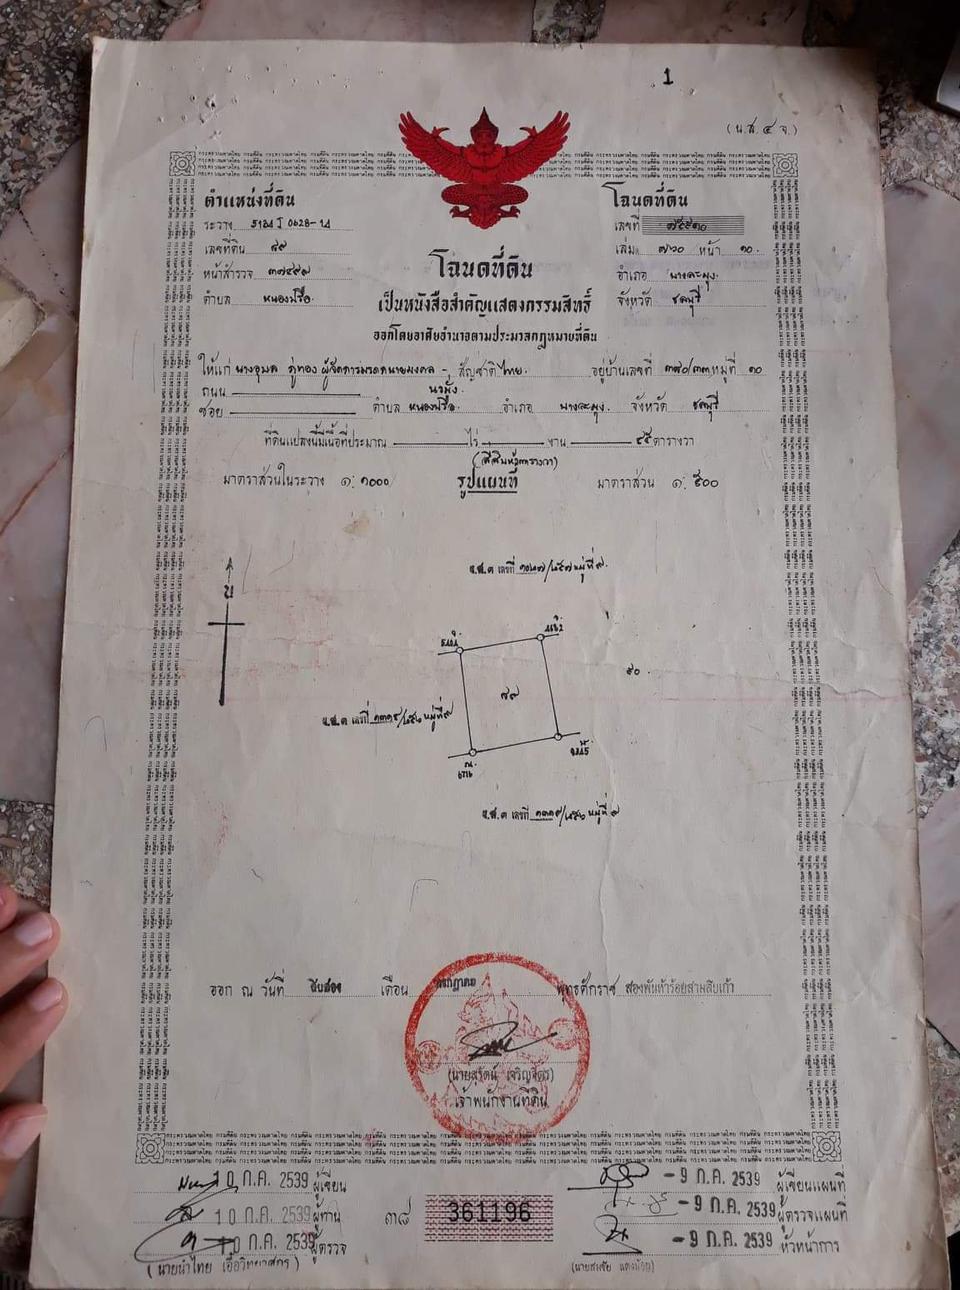 1
(น.ส.๔ จ.)
ตำแหน่งที่ดิน
ระวาง 5134 I 0628-14
เลขที่ดิน ๘๙
หน้าสำรวจ ๓๗๔๙๙
ตำบล หนองปรือ
โฉนดที่ดิน
เลขที่ ๗๕๕๑๐
เล่ม ๗๖๐ หน้า ๑๐
อำเภอ บางละมุง
จังหวัด ชลบุรี
โฉนดที่ดิน
เป็นหนังสือสำคัญแสดงกรรมสิทธิ์
ออกโดยอาศัยอำนาจตามประมวลกฎหมายที่ดิน
ให้แก่ นางอุมล ภู่ทอง ผู้จัดการมรดกนายมงคล สัญชาติ ไทย อยู่บ้านเลขที่ ๓๗๐/๓๓ หมู่ที่ ๑๐
ถนน
ซอย ตำบล หนองปรือ อำเภอ บางละมุง จังหวัด ชลบุรี
ที่ดินแปลงนี้มีเนื้อที่ประมาณ ไร่ งาน ๔๕ ตารางวา
(สี่สิบห้าตารางวา)
มาตราส่วนในระวาง ๑:๑๐๐๐ รูปแผนที่ มาตราส่วน ๑:๕๐๐
น
น.ส.๓ เลขที่ หมู่ที่ ๙
๘๙
๙๐
น.ส.๓ เลขที่ หมู่ที่ ๙
6716
น.ส.๓ เลขที่ หมู่ที่ ๙
ออก ณ วันที่ สิบสอง เดือน กรกฎาคม พุทธศักราช สองพันห้าร้อยสามสิบเก้า
(นายสุรัตน์ เจริญจิตร)
เจ้าพนักงานที่ดิน
10 ก.ค. 2539 ผู้เขียน
10 ก.ค. 2539 ผู้ทาน
10 ก.ค. 2539 ผู้ตรวจ
(นายนำไทย เอื้อวิทยาศกร)
๓๘ 361196
- 9 ก.ค. 2539 ผู้เขียนแผนที่
- 9 ก.ค. 2539 ผู้ตรวจแผนที่
- 9 ก.ค. 2539 หัวหน้าการ